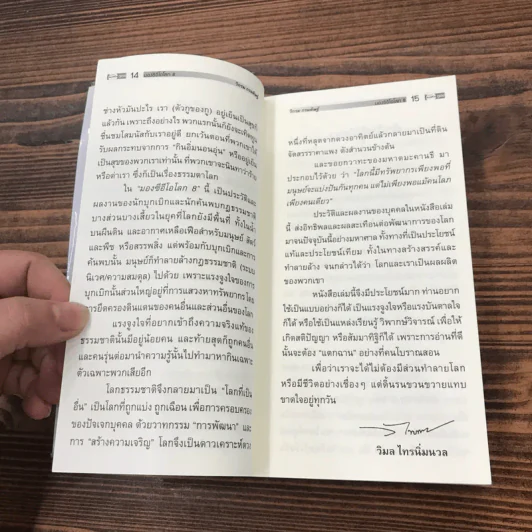 14
ช่างหัวมันปะไร เรา (ตัวกูของกู) อยู่เย็นเป็นสุขก็
แล้วกัน เพราะถึงอย่างไร พวกแรกนั้นก็ยังจะเทิดทูน
ชื่นชมโสมนัสกับเราอยู่ดี ยกเว้นตอนที่พวกเขาได้
รับผลกระทบจากการ "กินอิ่มนอนอุ่น" หรืออยู่เย็น
เป็นสุขของพวกเราเท่านั้น ที่พวกเขาจะนินทาว่าร้าย
หรือด่าเรา ซึ่งก็เป็นเรื่องธรรมดาโลก
ใน "มองซีอีโอโลก 8" นี้ เป็นประวัติและ
ผลงานของนักบุกเบิกและนักค้นพบกฎธรรมชาติ
บางส่วนบางเสี้ยวในยุคที่โลกยังมีพื้นที่ ทั้งในน้ำ
บนผืนดิน และอากาศเหลือเฟือสำหรับมนุษย์ สัตว์
และพืช หรือสรรพสิ่ง แต่พร้อมกับบุกเบิกและการ
ค้นพบนั้น มนุษย์ก็ทำลายล้างกฎธรรมชาติ (ระบบ
นิเวศ/ความสมดุล) ไปด้วย เพราะแรงจูงใจของการ
บุกเบิกนั้นส่วนใหญ่อยู่ที่การแสวงหาทรัพยากร โดย
การยึดครองดินแดนของคนอื่นและส่วนอื่นของโลก
แรงจูงใจที่อยากเข้าถึงความจริงแท้ของ
ธรรมชาตินั้นมีอยู่น้อยคน และท้ายสุดก็ถูกคนอื่น
และคนรุ่นต่อมานำความรู้นั้นไปทำมาหากินเฉพาะ
ตัวเฉพาะพวกเสียอีก
โลกธรรมชาติจึงกลายมาเป็น "โลกที่เป็น
อื่น" เป็นโลกที่ถูกแบ่ง ถูกเฉือน เพื่อการครอบครอง
ของปัจเจกบุคคล ด้วยวาทกรรม "การพัฒนา" และ
การ "สร้างความเจริญ" โลกจึงเป็นดาวเคราะห์ดวง
15
หนึ่งที่หลุดจากดวงอาทิตย์แล้วกลายมาเป็นที่ดิน
จัดสรรราคาแพง ดังสำนวนข้างต้น
และขอยกวาทะของมหาตมะคานธี มา
ประกอบไว้ด้วย ว่า "โลกนี้มีทรัพยากรเพียงพอที่
มนุษย์จะแบ่งปันกันทุกคน แต่ไม่เพียงพอแม้คนโลภ
เพียงคนเดียว"
ประวัติและผลงานของบุคคลในหนังสือเล่ม
นี้ ส่งอิทธิพลและผลสะเทือนต่อพัฒนาการของโลก
มาจนปัจจุบันนี้อย่างมหาศาล ทั้งทางที่เป็นประโยชน์
แท้และประโยชน์เทียม ทั้งในทางสร้างสรรค์และ
ทำลายล้าง จนกล่าวได้ว่า โลกและเราเป็นผลผลิต
ของพวกเขา
หนังสือเล่มนี้จึงมีประโยชน์มาก ท่านอยาก
ใช้เป็นแบบอย่างก็ได้ เป็นแรงจูงใจหรือแรงบันดาลใจ
ก็ได้ หรือใช้เป็นแหล่งเรียนรู้ วิพากษ์วิจารณ์ เพื่อให้
เกิดสติปัญญา หรือสัมมาทิฐิก็ได้ เพราะการอ่านที่ดี
นั้นจะต้อง "แตกฉาน" อย่างที่คนโบราณสอน
เพื่อว่าเราจะได้ไม่ต้องมีส่วนทำลายโลก
หรือมีชีวิตอย่างเซื่องๆ แต่ดิ้นรนขวนขวายแทบ
ขาดใจอยู่ทุกวัน
วิมล ไทรนิ่มนวล